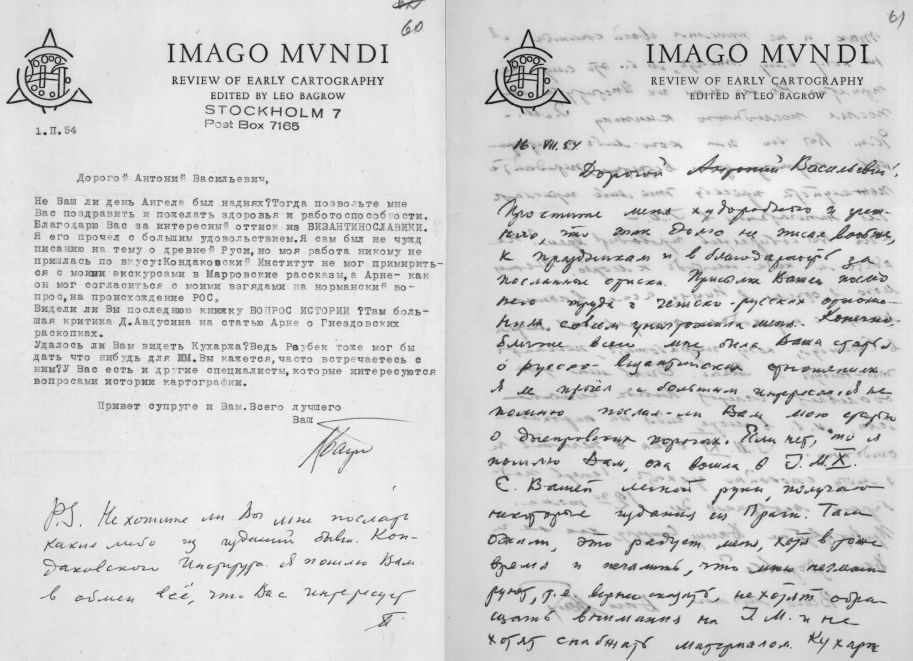 60
IMAGO MVNDI
REVIEW OF EARLY CARTOGRAPHY
EDITED BY LEO BAGROW
STOCKHOLM 7
Post Box 7165
1.II.54
Дорогой Антоний Васильевич,
Не Ваш ли день Ангела был наднях?Тогда позвольте мне
Вас поздравить и пожелать здоровья и работоспособности.
Благодарю Вас за интересный оттиск из ВИЗАНТИНОСЛАВИКИ.
Я его прочел с большим удовольствием.Я сам был не чужд
писанию на тему о древней Руси,но моя работа никому не
пришлась по вкусу:Кондаковский Институт не мог примирить-
ся с моими экскурсами в Марровские рассказы, а Арне- как
он мог согласиться с моими взглядами на норманский во-
прос,на происхождение РОС,
Видели ли Вы последнюю книжку ВОПРОС ИСТОРИИ ?Там боль-
шая критика Д.Авдусина на статью Арне о Гнездовских
раскопках.
Удалось ли Вам видеть Кухаржа?Ведь Роубек тоже мог бы
дать что нибудь для ИМ.Вы кажется,часто встречаетесь с
ним?У Вас есть и другие специалисты,которые интересуются
вопросами истории картографии.
Привет супруге и Вам.Всего лучшего
Ваш
P.S. Не хотите ли Вы мне послать
какие либо из изданий бывш. Кон-
даковского Института. Я пошлю Вам
в обмен всё, что Вас интересует
61
IMAGO MVNDI
REVIEW OF EARLY CARTOGRAPHY
EDITED BY LEO BAGROW
16.VII.54
Дорогой Антоний Васильевич!
Простите меня худородного и
что так долго не писал
к праздникам и в благодарность за
посланные оттиски. Присылка Вашего послед
него труда о чешско-русских отноше-
ниях совсем уничтожила меня. Конечно,
ближе всего мне была Ваша статья
о русско-византийских отношениях.
Я её прочёл с большим интересом. Я не
помню послал-ли Вам мою статью
о днепровских порогах. Если нет, то я
пошлю Вам, она вошла в I.M.X.
С Вашей легкой руки, получаю
некоторые издания из Праги. Там
ожили, это радует меня, хотя в тоже
время и печалит, что мною
т.е. верно сказать, не хотят обра-
щать внимания на I.M. и не
хотят снабжать материалом. Кухарж